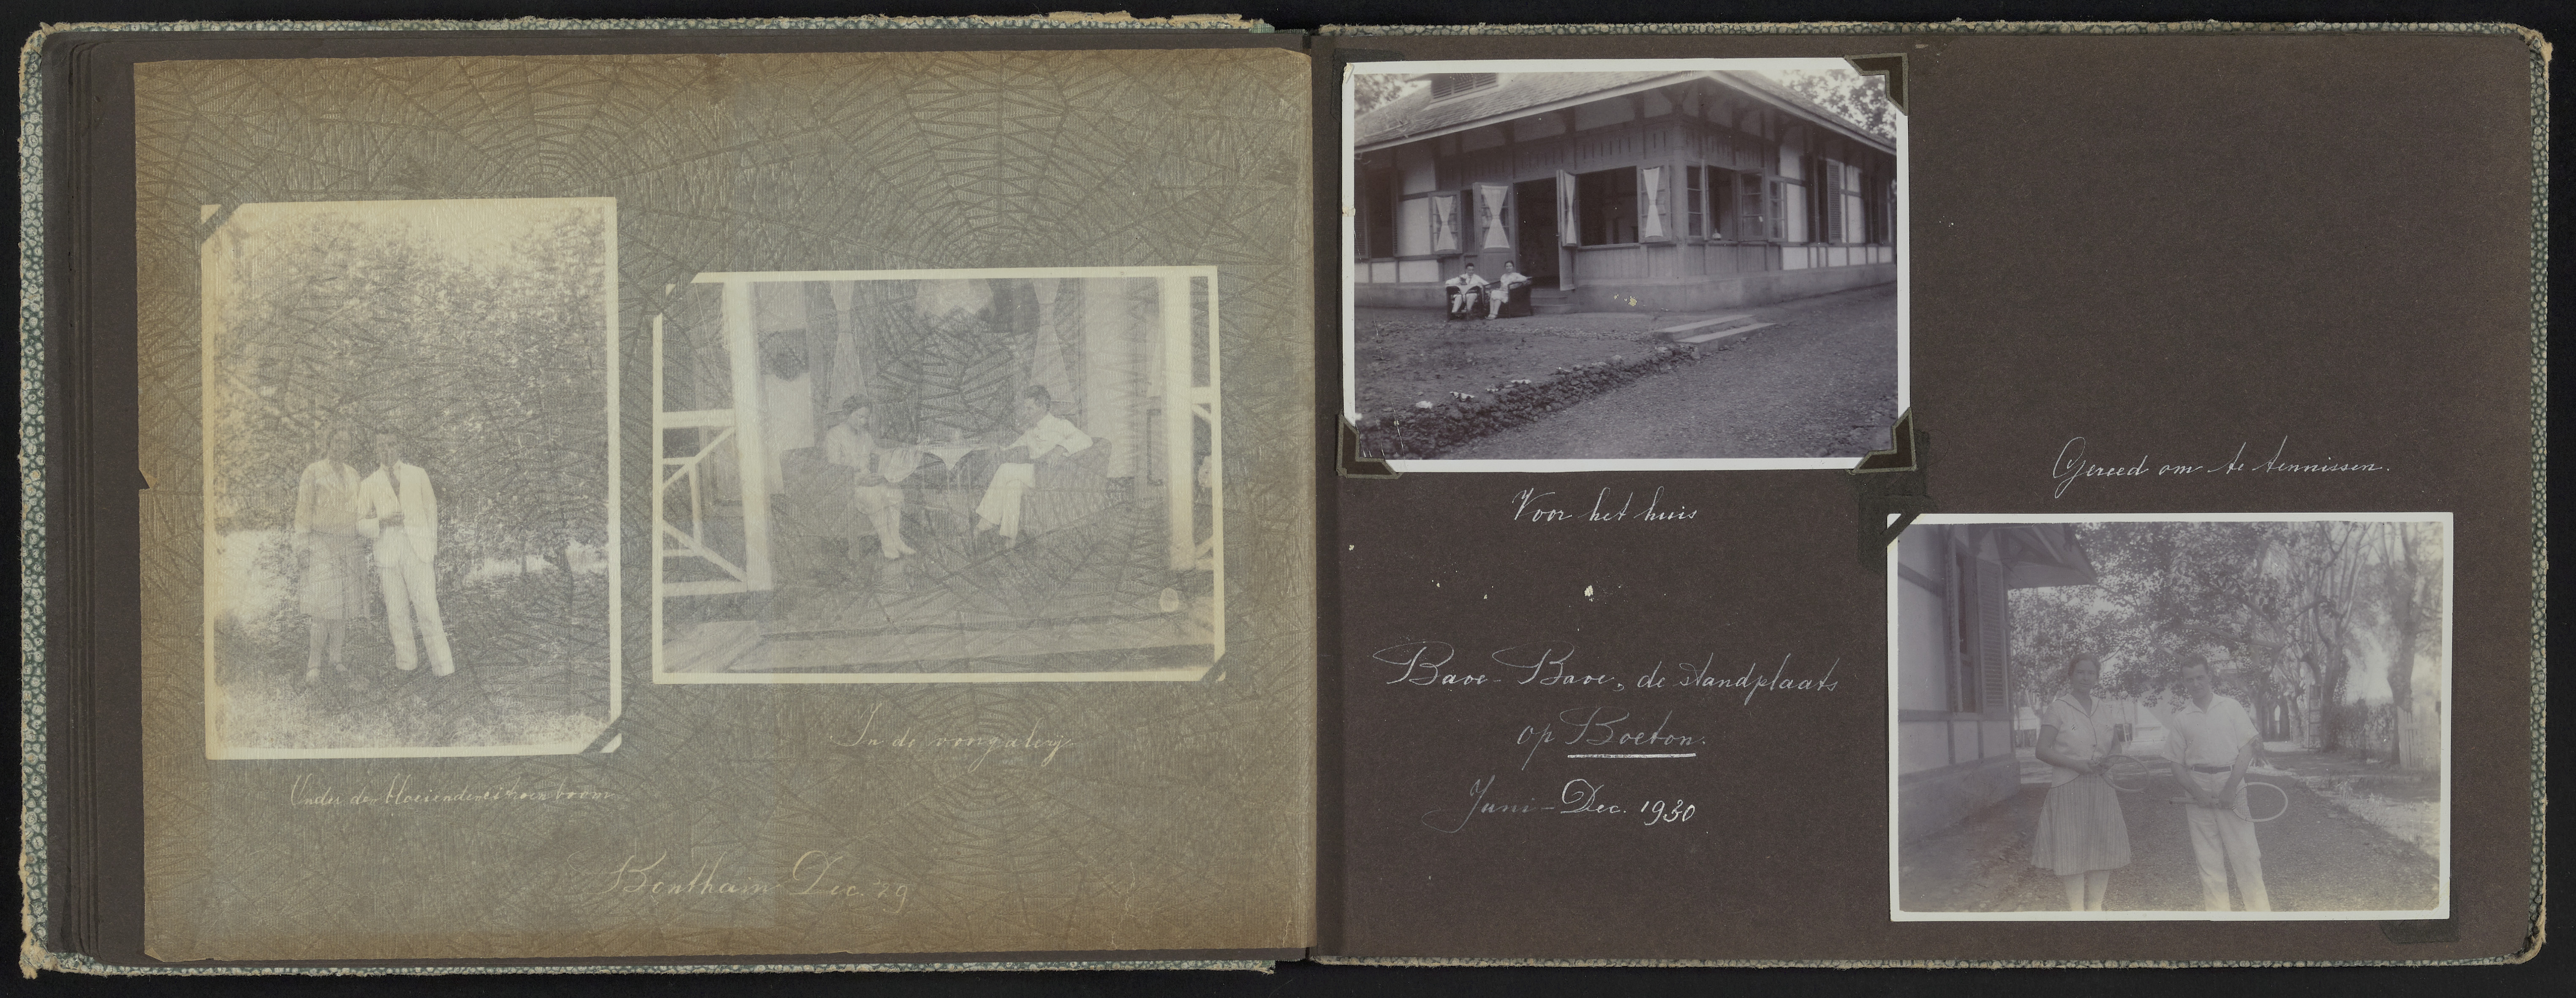 Onder den bloeienden citroenboom
In de voorgalerij
Benthain Dec. '29
Voor het huis
Gereed om te tennissen.
Baoe-Baoe, de standplaats
op Boeton.
Juni-Dec. 1930